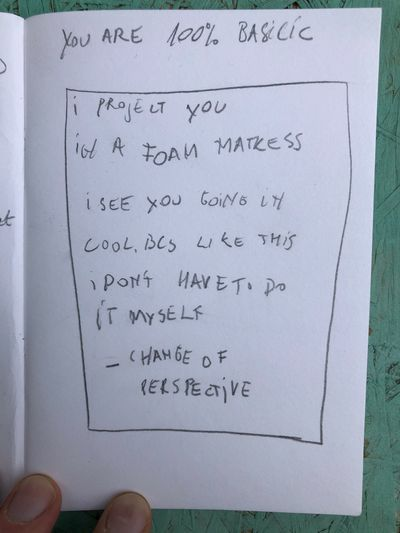 YOU ARE 100% BASILIC
i PROJECT YOU
A FOAM MATRESS
i SEE YOU GOING IN
COOL. BCS LIKE THIS
i DON'T HAVE TO DO
IT MYSELF
– CHANGE OF
PERSPECTIVE